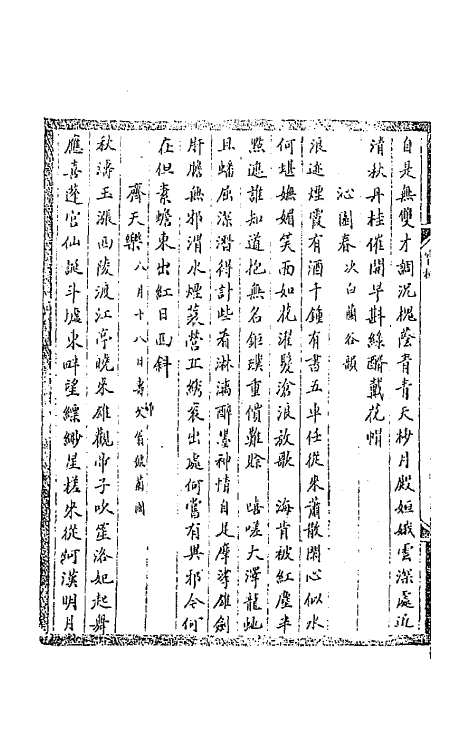 自是無雙才調況槐蔭青青天杪月殿姮娥雲深處近
清秋丹桂催開早斟綠醑戴花帽
沁園春 次白蘭谷韻
浪迹煙霞有酒千鍾有書五車任從來蕭散閑心似水
何堪嫵媚笑面如花濯髮滄浪放歌 海肯被紅塵半
點遮誰知道抱無名鉅璞重價難賒 嘻嗟大澤龍蛇
且蟠屈深潛得計些看淋漓醉墨神情自足摩挲雄劍
肝膽無邪渭水煙蓑營丘繡袞出處何嘗有異邪今何
在但素蟾東出紅日西斜
齊天樂 八月十八日壽父翁侯蘭國
秋濤玉漲西陵渡江亭曉來雄觀帝子吹笙洛妃起舞
應喜蓬宫仙誕斗墟東畔望縹緲星槎來從河漢明月